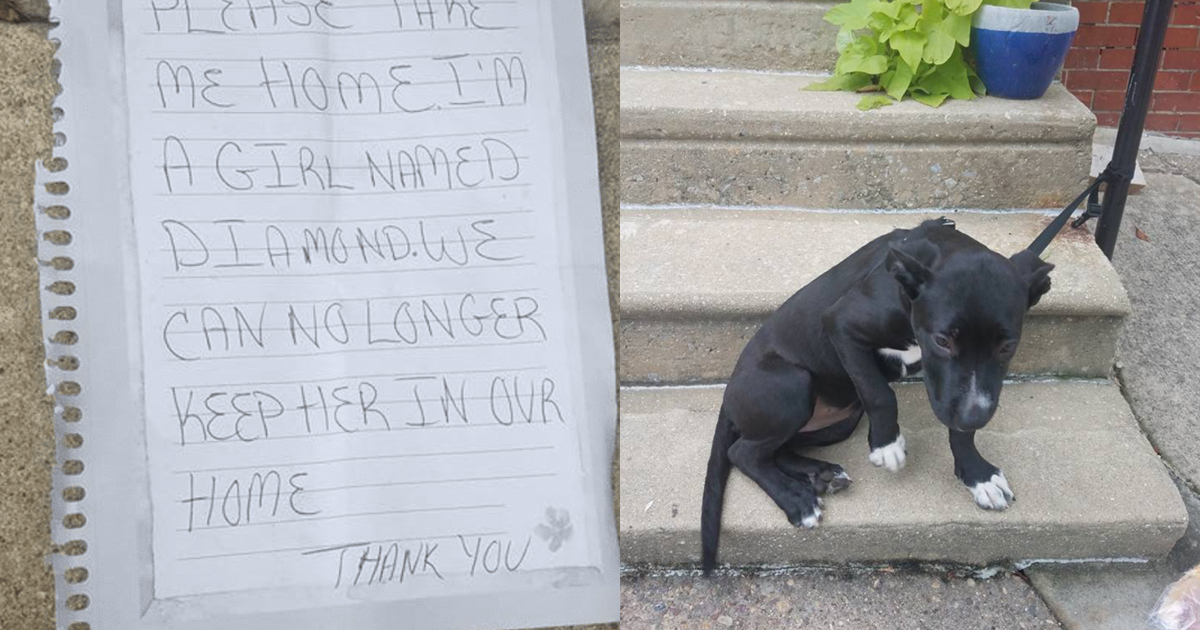 PLEASE TAKE
ME HOME. I'M
A GIRL NAMED
DIAMOND. WE
CAN NO LONGER
KEEP HER IN OUR
HOME
THANK YOU